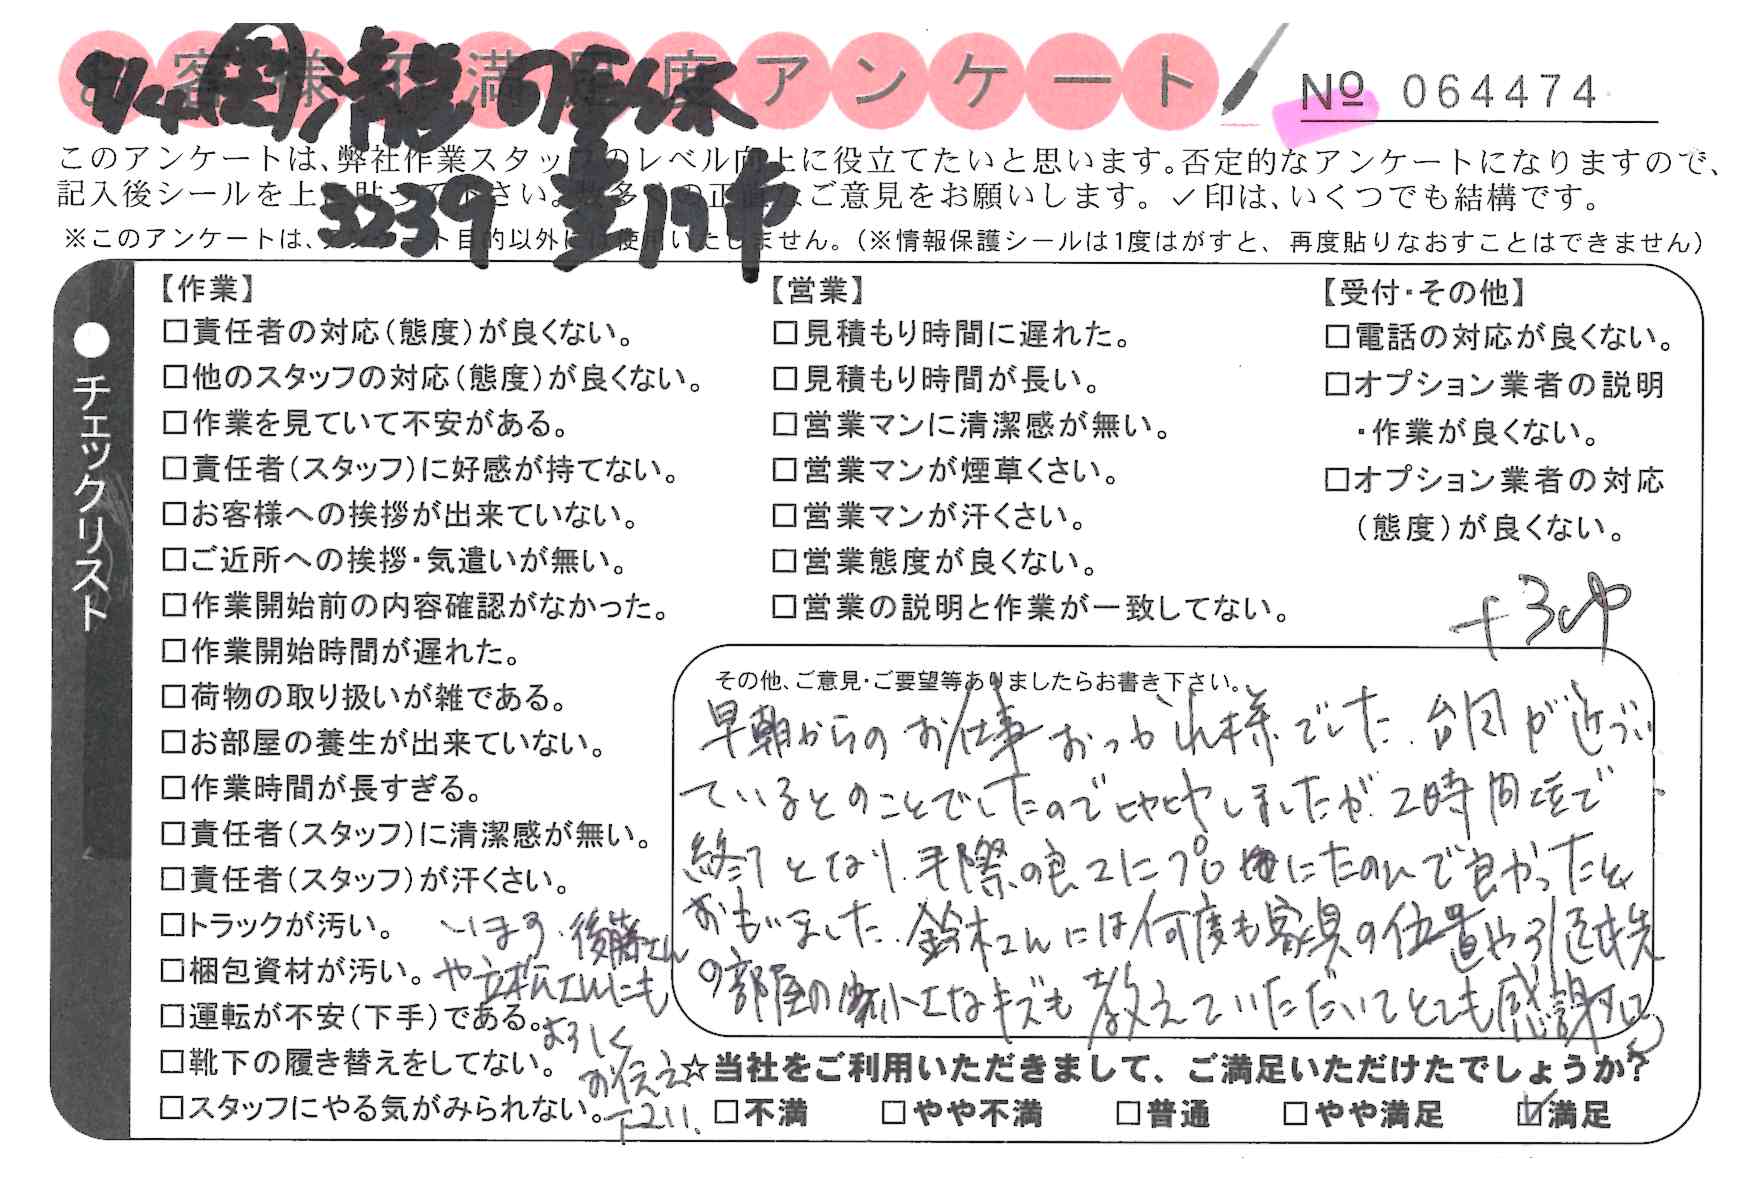 お客様不満足度アンケート
№ 064474
このアンケートは、弊社作業スタッフのレベル向上に役立てたいと思います。否定的なアンケートになりますので、
記入後シールを上に貼って下さい。数多くの正直なご意見をお願いします。✓印は、いくつでも結構です。
※このアンケートは、アンケート目的以外には使用いたしません。(※情報保護シールは1度はがすと、再度貼りなおすことはできません)
3239
●チェックリスト
【作業】
□責任者の対応(態度)が良くない。
□他のスタッフの対応(態度)が良くない。
□作業を見ていて不安がある。
□責任者(スタッフ)に好感が持てない。
□お客様への挨拶が出来ていない。
□ご近所への挨拶・気遣いが無い。
□作業開始前の内容確認がなかった。
□作業開始時間が遅れた。
□荷物の取り扱いが雑である。
□お部屋の養生が出来ていない。
□作業時間が長すぎる。
□責任者(スタッフ)に清潔感が無い。
□責任者(スタッフ)が汗くさい。
□トラックが汚い。
□梱包資材が汚い。
□運転が不安(下手)である。
□靴下の履き替えをしてない。
□スタッフにやる気がみられない。
【営業】
□見積もり時間に遅れた。
□見積もり時間が長い。
□営業マンに清潔感が無い。
□営業マンが煙草くさい。
□営業マンが汗くさい。
□営業態度が良くない。
□営業の説明と作業が一致してない。
【受付・その他】
□電話の対応が良くない。
□オプション業者の説明
・作業が良くない。
□オプション業者の対応
(態度)が良くない。
その他、ご意見・ご要望等ありましたらお書き下さい。
早朝からのお仕事おつかれ様でした。台風が近づい
ているとのことでしたのでヒヤヒヤしましたが、2時間ほどで
終了となり、手際の良さにプロにたのんで良かったと
おもいました。鈴木さんには何度も家具の位置や引越先
の部屋の小さなキズも教えていただいてとても感謝して
います。後藤さん
や立松さんにも
よろしく
お伝え
下さい。
☆当社をご利用いただきまして、ご満足いただけたでしょうか?
□不満 □やや不満 □普通 □やや満足 ☑満足